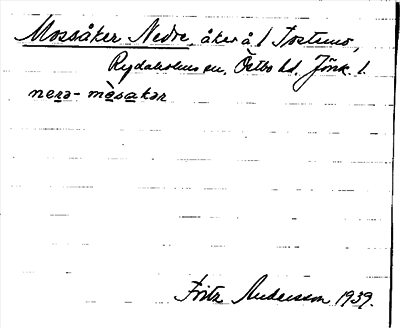 Mossåker Nedre, åker å 1 Tostunö,
Rydaholms sn. Östbo hd. Jönk. l.
nerə- mòsakər
Fritz Andersson 1939.